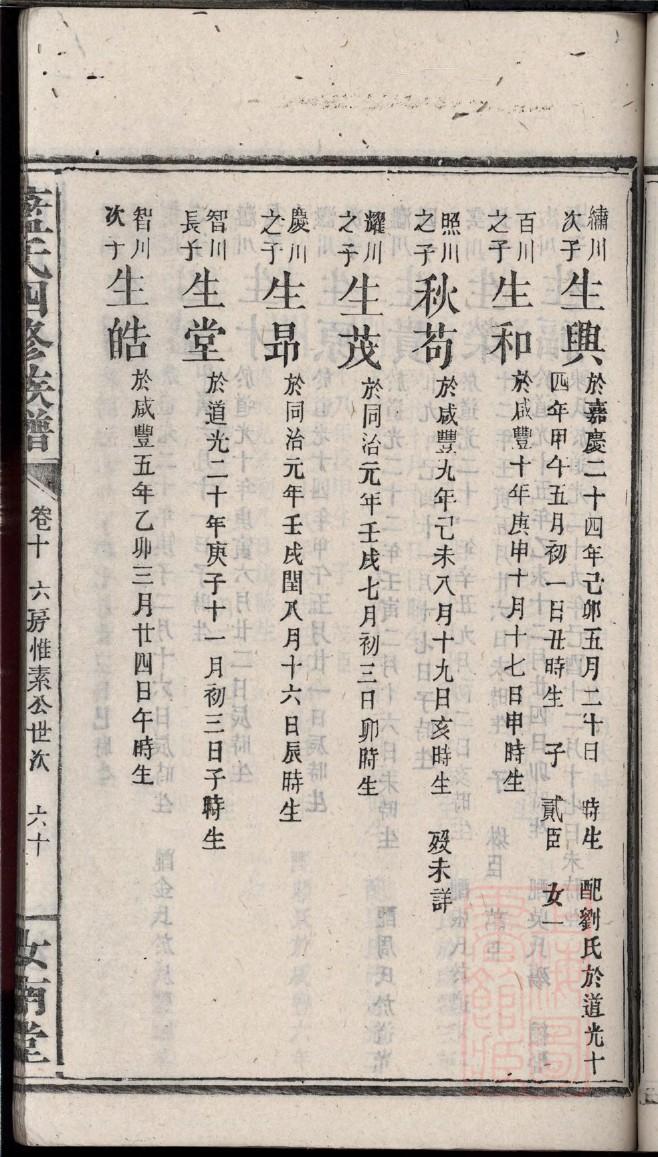 繡川次子 生興 於嘉慶二十四年己卯五月二十日 時生 配劉氏於道光十
四年甲午五月初一日丑時生 子 貳臣 女一
百川之子 生和 於咸豐十年庚申十月十七日申時生
照川之子 秋苟 於咸豐九年己未八月十九日亥時生 歿未詳
耀川之子 生茂 於同治元年壬戌七月初三日卯時生
慶川之子 生昻 於同治元年壬戌閏八月十六日辰時生
智川長子 生堂 於道光二十年庚子十一月初三日子時生
智川次子 生皓 於咸豐五年乙卯三月廿四日午時生
氏四修族譜 卷十 六房惟素公世次 六十 汝南堂